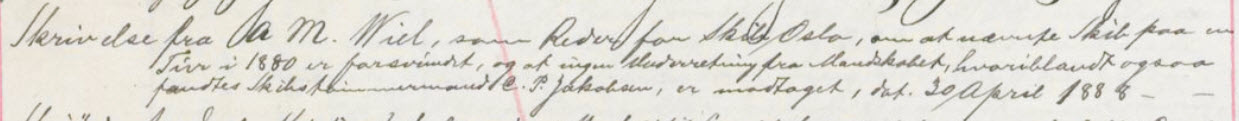 Skrivelse fra A M. Wiel, som Reder for Skib Oslo, om at nævnte Skib paa en
Tur i 1880 er forsvundet, og at ingen Underretning fra Mandskabet, hvoriblandt ogsaa
fandtes Skibstømmermand C. P. Jakobsen, er modtaget, dat. 20 April 1888 – –